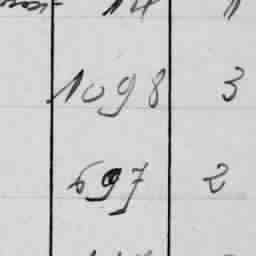 14 1
1098 3
697 2